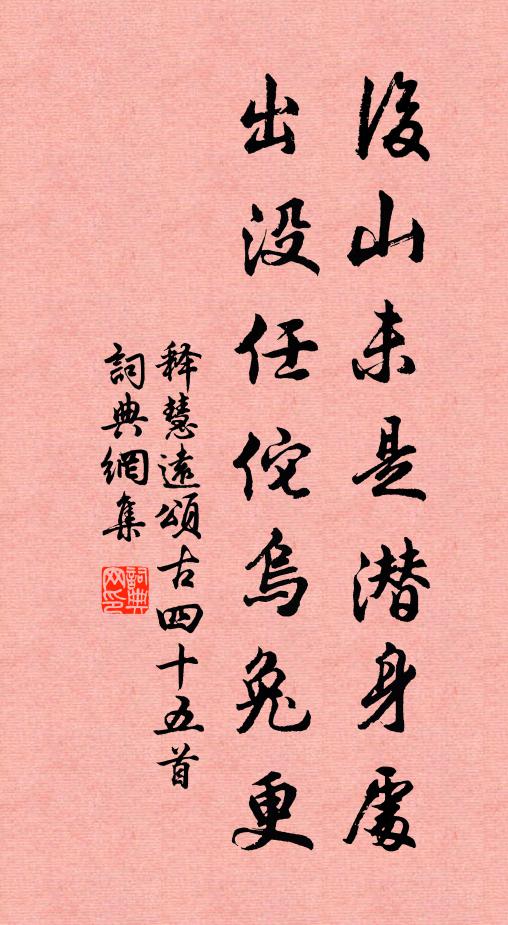 後山未是潜身處
出没任佗烏兔更
釋慧遠頌古四十五首
詞典網集
詞典网印